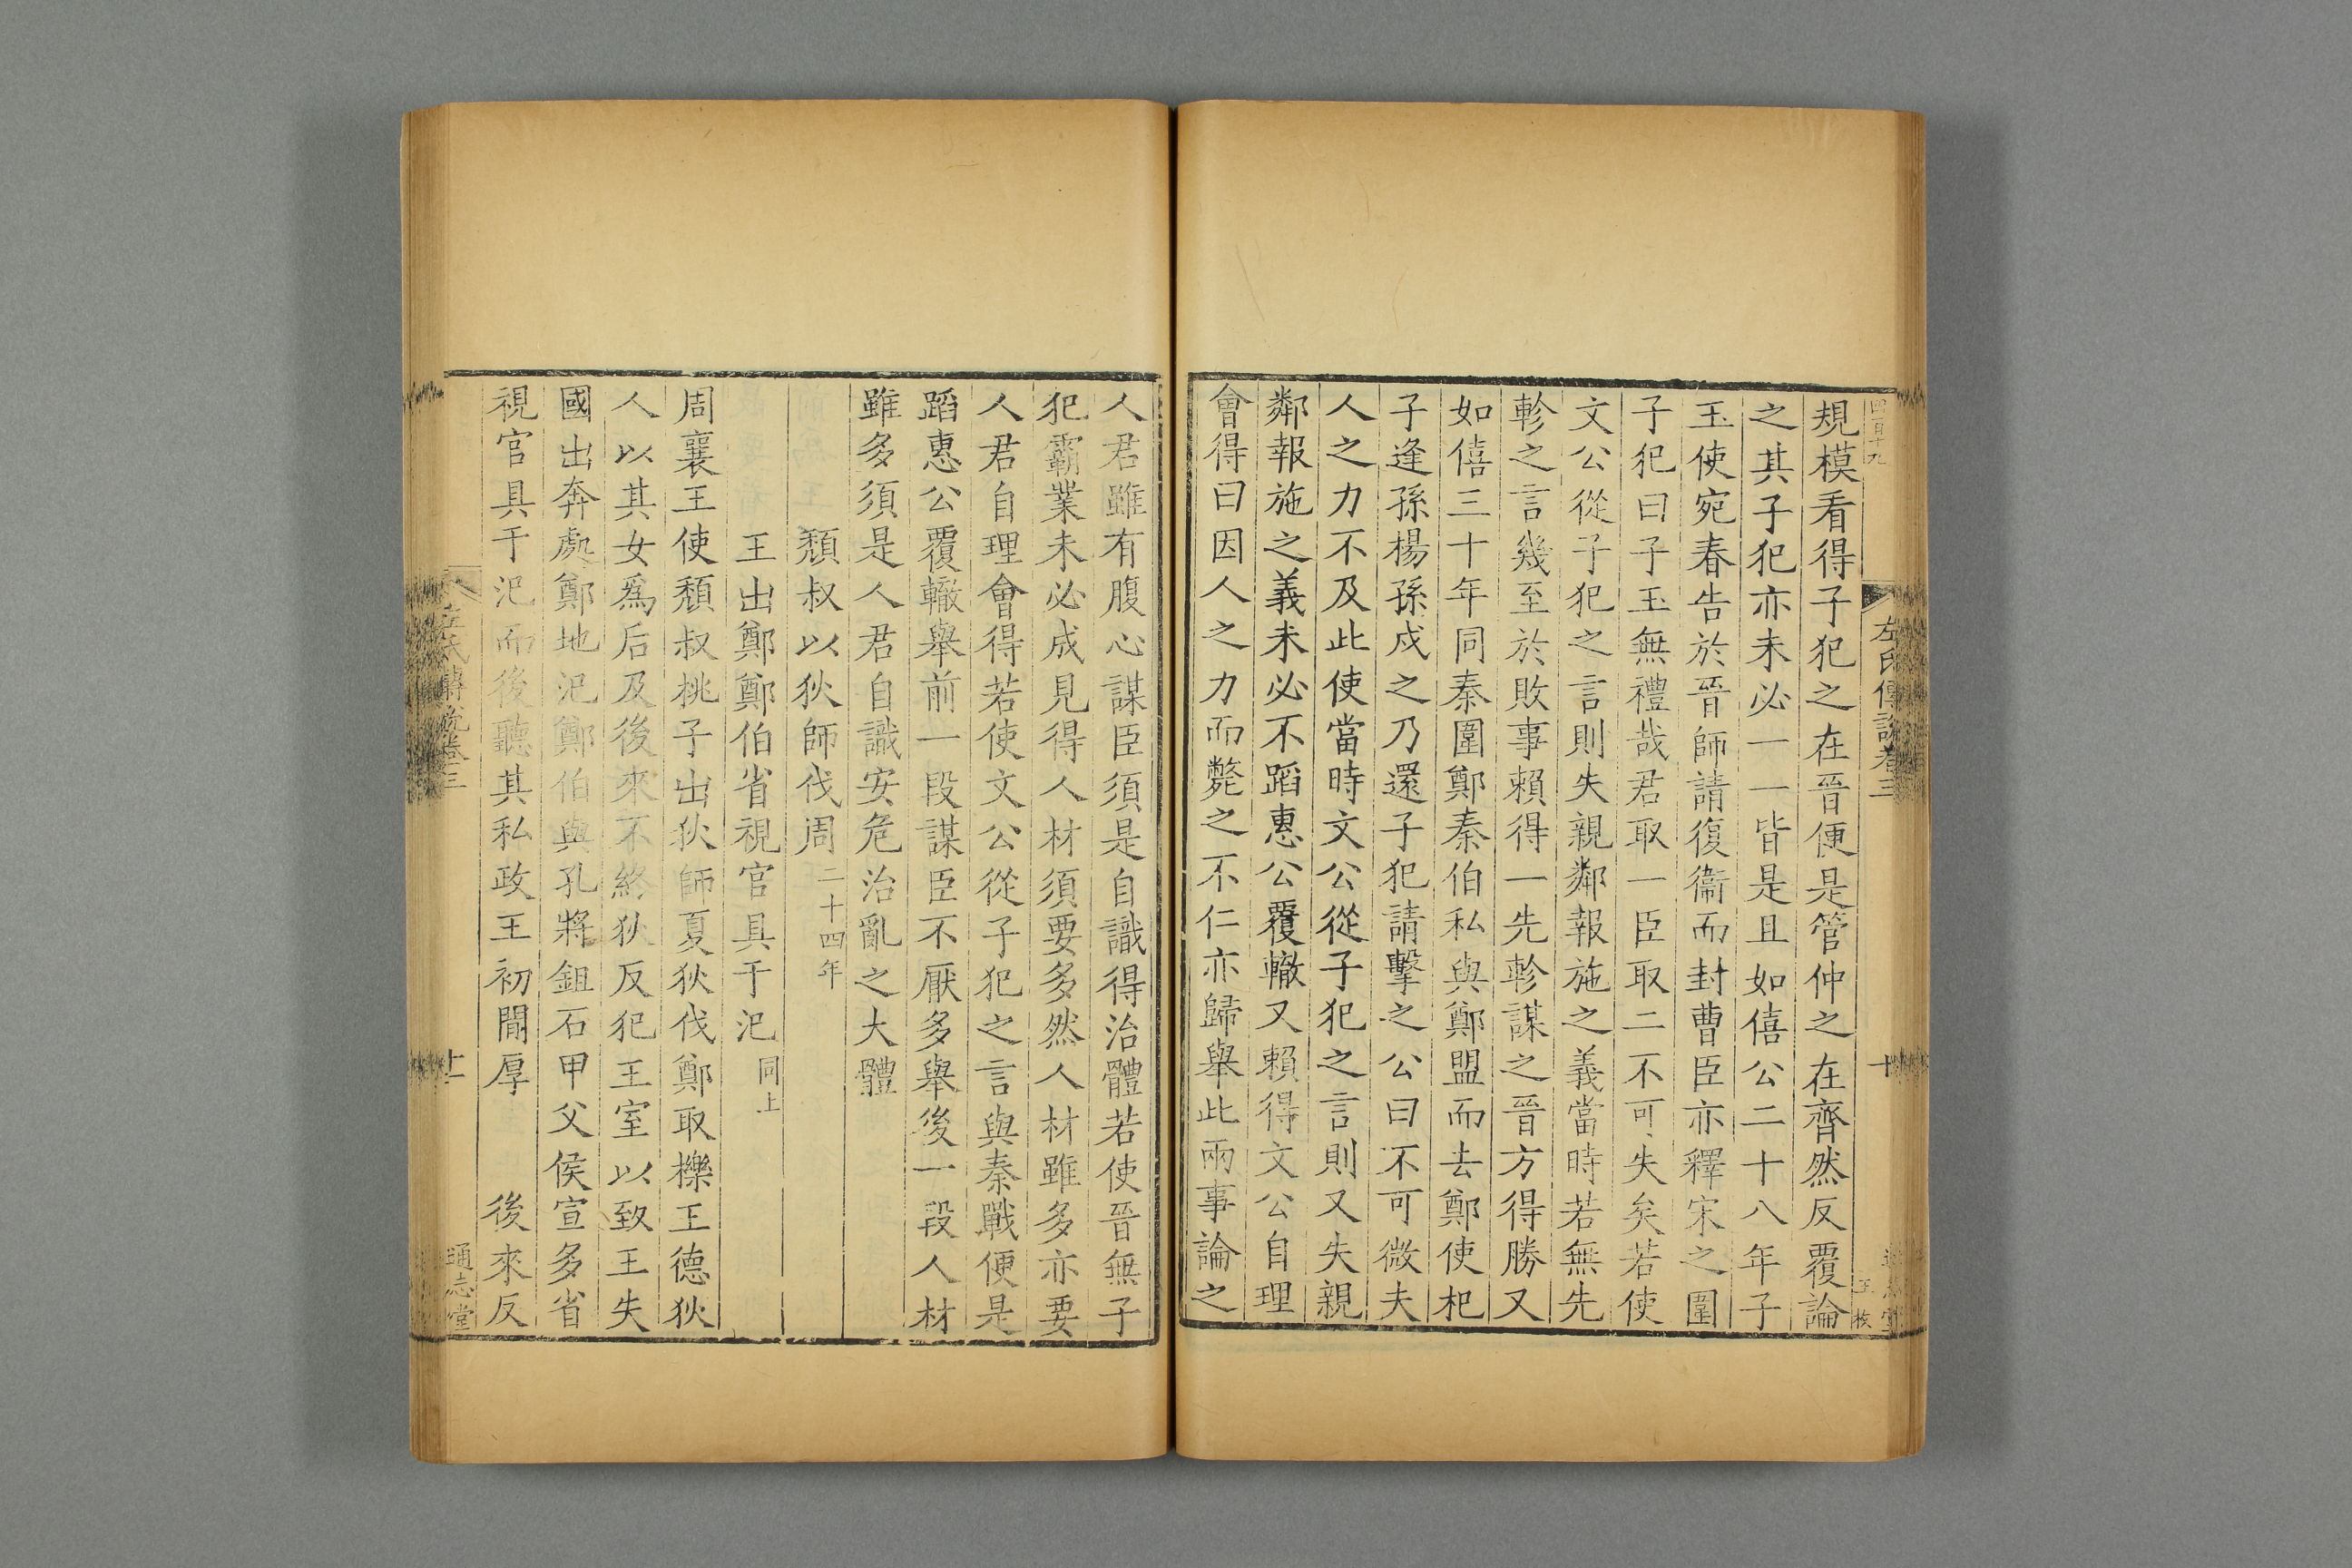 四百十九
左氏傳說卷三
十
規模看得子犯之在晉便是管仲之在齊然反覆論
之其子犯亦未必一一皆是且如僖公二十八年子
玉使宛春告於晉師請復衞而封曹臣亦釋宋之圍
子犯曰子玉無禮哉君取一臣取二不可失矣若使
文公從子犯之言則失親鄰報施之義當時若無先
軫之言幾至於敗事賴得一先軫謀之晉方得勝又
如僖三十年同秦圍鄭秦伯私與鄭盟而去鄭使杞
子逢孫楊孫戍之乃還子犯請擊之公曰不可微夫
人之力不及此使當時文公從子犯之言則又失親
鄰報施之義未必不蹈惠公覆轍又賴得文公自理
會得曰因人之力而斃之不仁亦歸舉此兩事論之
人君雖有腹心謀臣須是自識得治體若使晉無子
犯霸業未必成見得人材須要多然人材雖多亦要
人君自理會得若使文公從子犯之言與秦戰便是
蹈惠公覆轍舉前一段謀臣不厭多舉後一段人材
雖多須是人君自識安危治亂之大體
頹叔以狄師伐周二十四年
王出鄭鄭伯省視官具于氾同上
周襄王使頹叔桃子出狄師夏狄伐鄭取櫟王德狄
人以其女爲后及後來不終狄反犯王室以致王失
國出奔處鄭地氾鄭伯與孔將鉏石甲父侯宣多省
視官具于氾而後聽其私政王初間厚　後來反
左氏傳說卷三
十一
通志堂